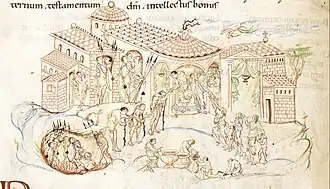 ternum. testamentum dni. intellectus bonus